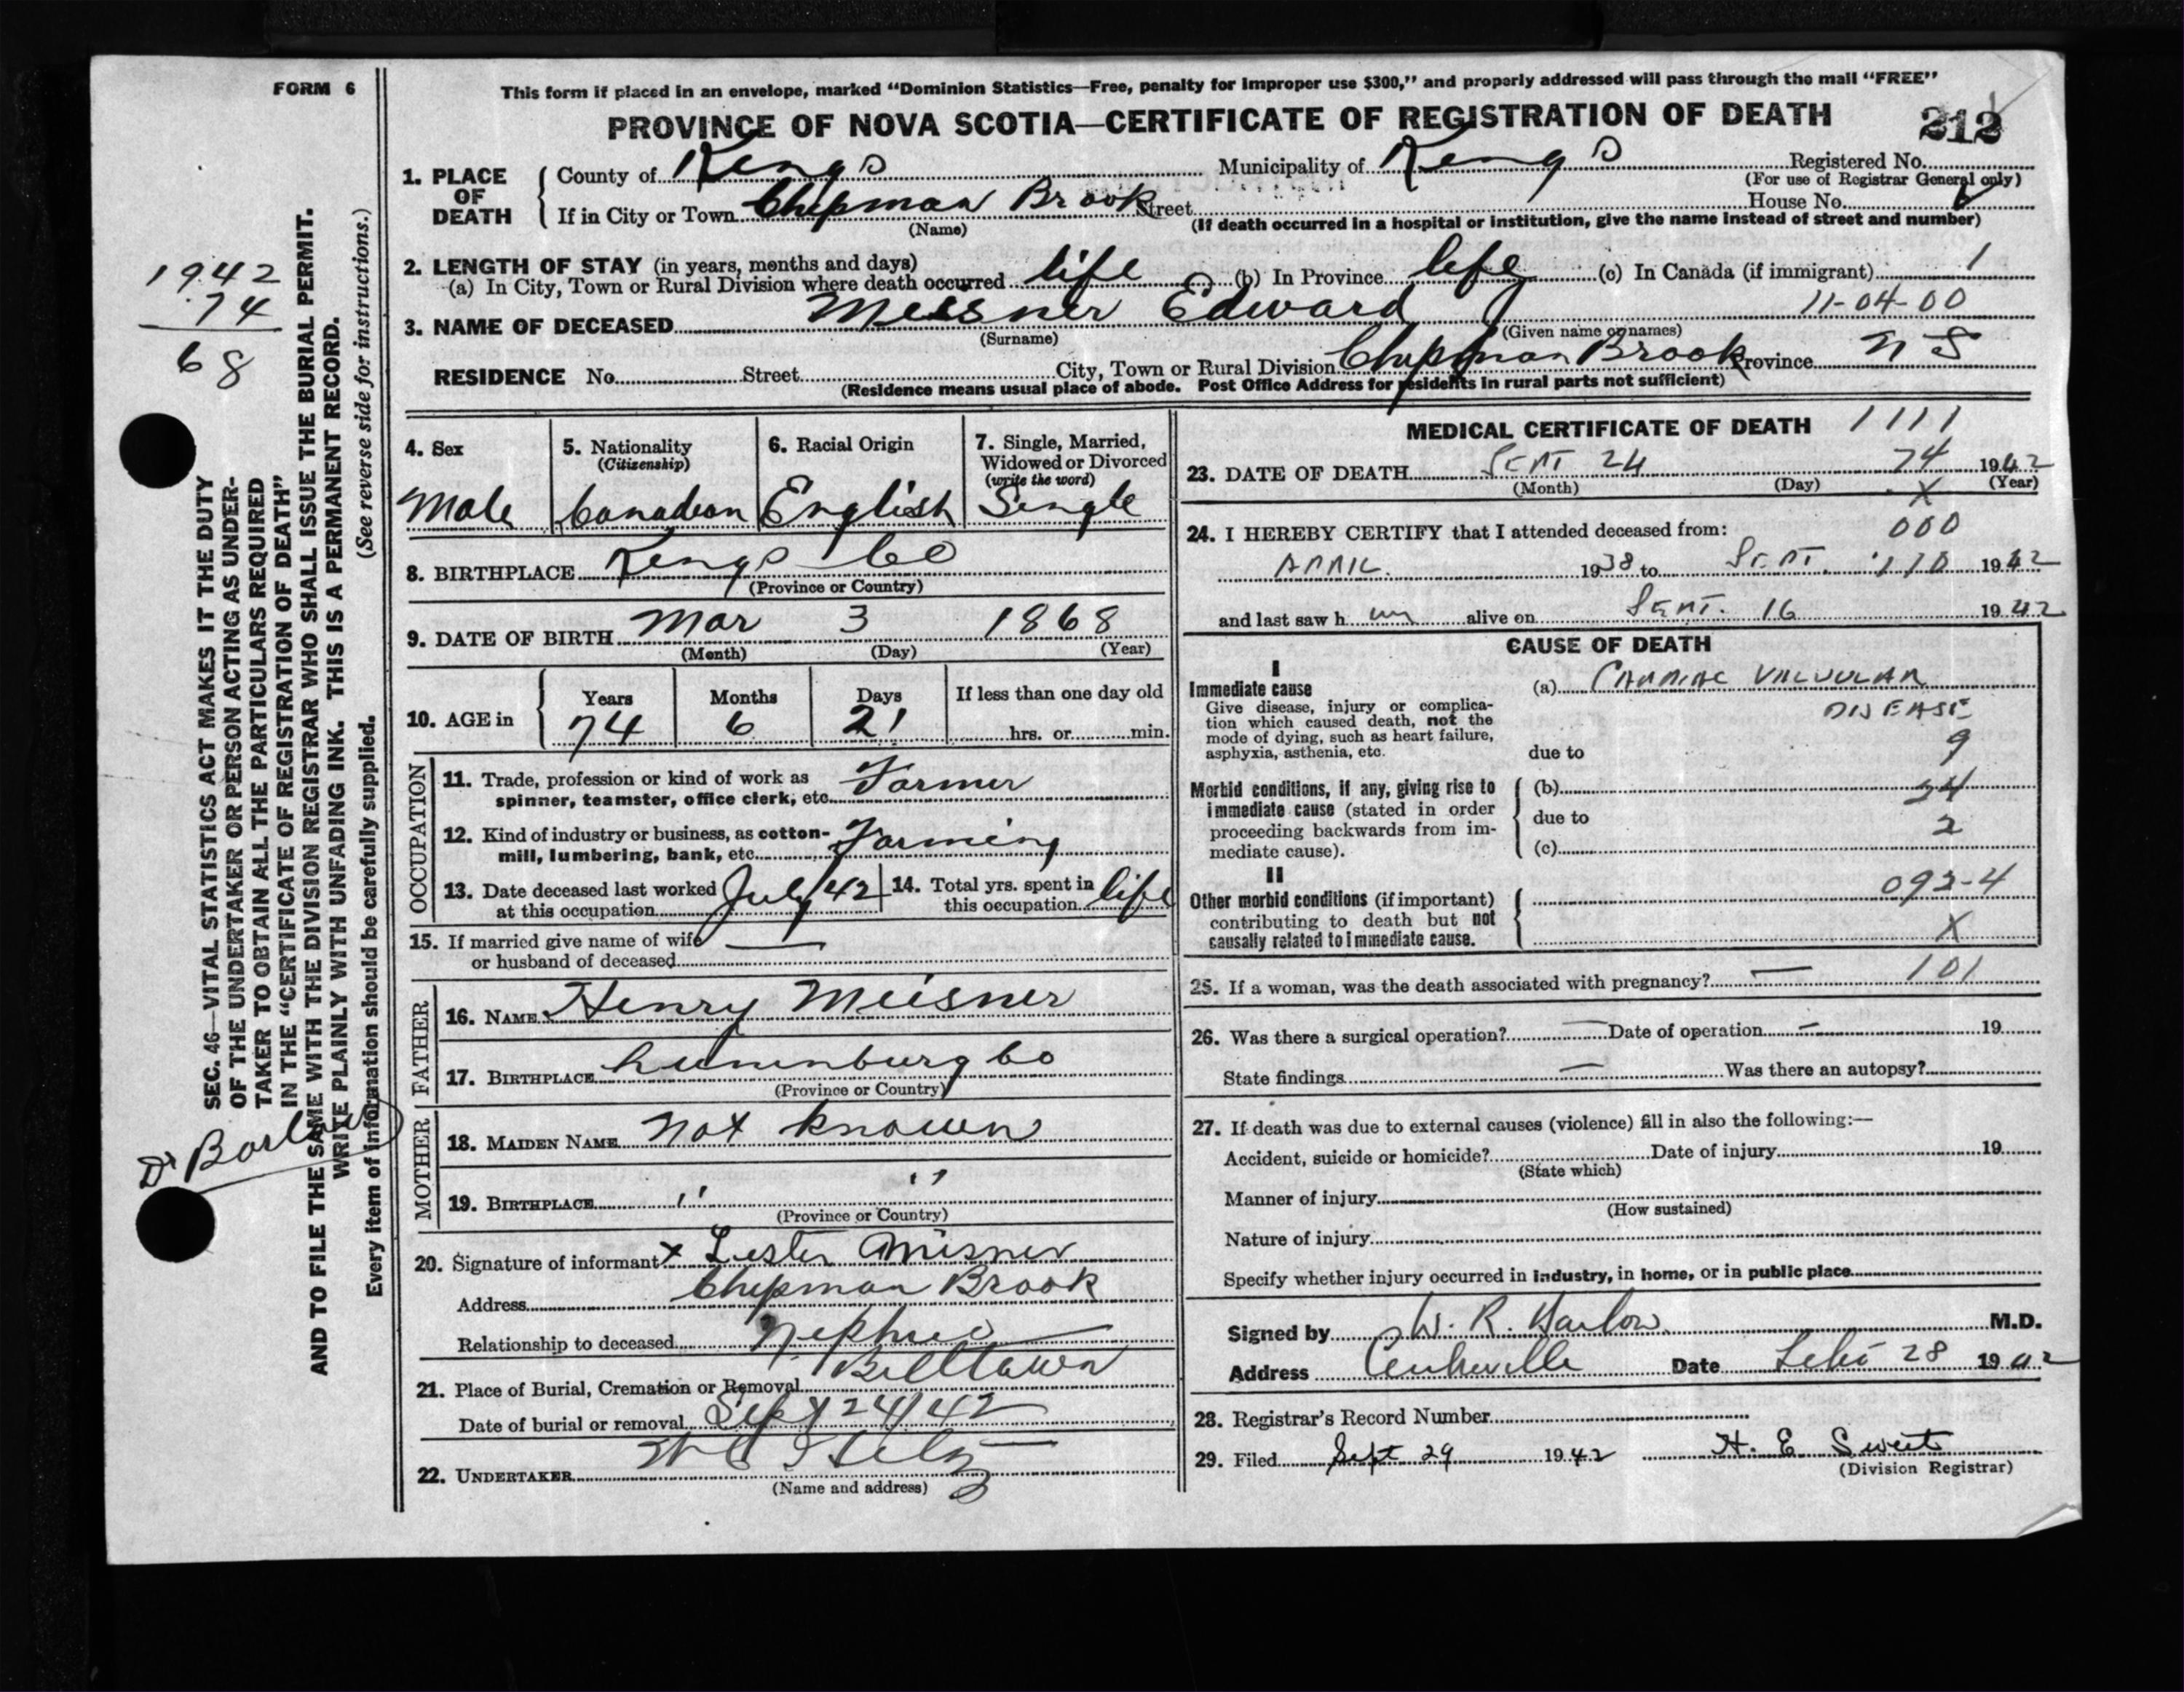 FORM 6
This form if placed in an envelope, marked “Dominion Statistics—Free, penalty for improper use $300,” and properly addressed will pass through the mail “FREE”
PROVINCE OF NOVA SCOTIA—CERTIFICATE OF REGISTRATION OF DEATH
212
1. PLACE OF DEATH
County of Kings Municipality of Kings Registered No.
(For use of Registrar General only)
If in City or Town Chipman Brook Street House No.
(Name) (If death occurred in a hospital or institution, give the name instead of street and number)
2. LENGTH OF STAY (in years, months and days)
(a) In City, Town or Rural Division where death occurred life (b) In Province life (c) In Canada (if immigrant) 1
11-04-00
3. NAME OF DECEASED Meisner Edward
(Surname) (Given name or names)
RESIDENCE No. Street City, Town or Rural Division Chipman Brook Province N S
(Residence means usual place of abode. Post Office Address for residents in rural parts not sufficient)
1942
74
68
SEC. 46—VITAL STATISTICS ACT MAKES IT THE DUTY
OF THE UNDERTAKER OR PERSON ACTING AS UNDER-
TAKER TO OBTAIN ALL THE PARTICULARS REQUIRED
IN THE “CERTIFICATE OF REGISTRATION OF DEATH”
AND TO FILE THE SAME WITH THE DIVISION REGISTRAR WHO SHALL ISSUE THE BURIAL PERMIT.
WRITE PLAINLY WITH UNFADING INK. THIS IS A PERMANENT RECORD.
(See reverse side for instructions.)
Every item of information should be carefully supplied.
Dr
4. Sex
Male
5. Nationality
(Citizenship)
Canadian
6. Racial Origin
English
7. Single, Married,
Widowed or Divorced
(write the word)
Single
8. BIRTHPLACE Kings Co
(Province or Country)
9. DATE OF BIRTH Mar 3 1868
(Month) (Day) (Year)
10. AGE in
Years Months Days If less than one day old
74 6 21 hrs. or min.
OCCUPATION
11. Trade, profession or kind of work as
spinner, teamster, office clerk, etc. Farmer
12. Kind of industry or business, as cotton-
mill, lumbering, bank, etc. Farming
13. Date deceased last worked
at this occupation July/42
14. Total yrs. spent in
this occupation life
15. If married give name of wife —
or husband of deceased
FATHER
16. NAME Henry Meisner
17. BIRTHPLACE Lunenburg Co
(Province or Country)
MOTHER
18. MAIDEN NAME not known
19. BIRTHPLACE " "
(Province or Country)
20. Signature of informant x Lester Misner
Address Chipman Brook
Relationship to deceased Nephew
21. Place of Burial, Cremation or Removal Billtown
Date of burial or removal Sept 24/42
22. UNDERTAKER
(Name and address)
MEDICAL CERTIFICATE OF DEATH 1111
23. DATE OF DEATH SEPT 24 74 1942
(Month) (Day) (Year)
X
24. I HEREBY CERTIFY that I attended deceased from: 000
APRIL 1938 to SEPT. 110 1942
and last saw h im alive on SEPT. 16 1942
CAUSE OF DEATH
I
Immediate cause
Give disease, injury or complica-
tion which caused death, not the
mode of dying, such as heart failure,
asphyxia, asthenia, etc.
(a) CARDIAC VALVULAR
DISEASE
due to 9
Morbid conditions, if any, giving rise to
immediate cause (stated in order
proceeding backwards from im-
mediate cause).
(b)
due to 2
(c)
II
Other morbid conditions (if important)
contributing to death but not
causally related to immediate cause.
092-4
X
25. If a woman, was the death associated with pregnancy? — 101
26. Was there a surgical operation? — Date of operation — 19
State findings — Was there an autopsy?
27. If death was due to external causes (violence) fill in also the following:—
Accident, suicide or homicide? Date of injury 19
(State which)
Manner of injury
(How sustained)
Nature of injury
Specify whether injury occurred in industry, in home, or in public place
Signed by W. R. M.D.
Address Centreville Date Sept 28 1942
28. Registrar's Record Number
29. Filed Sept 29 1942 H. E. Sweet
(Division Registrar)